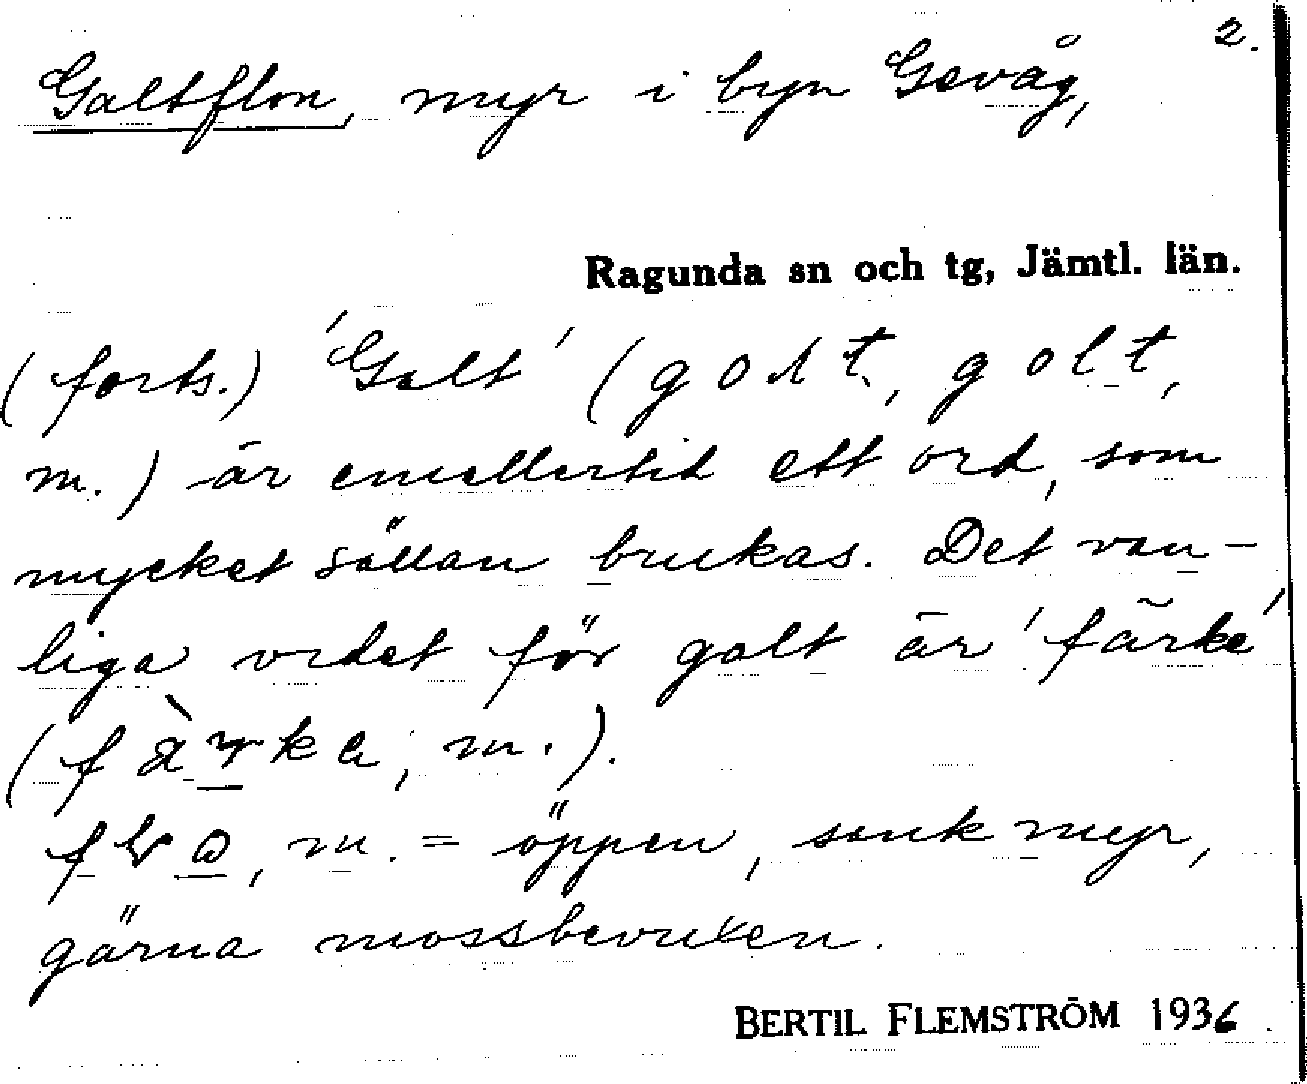 2.
Galtflon, myr i byn Gevåg,
Ragunda sn och tg, Jämtl. län.
(forts.) 'Galt' (golt, golt,
m.) är emellertid ett ord, som
mycket sällan brukas. Det van-
liga ordet för galt är 'färke'
m.).
m. = öppen, sank myr,
gärna mossbevuxen.
BERTIL FLEMSTRÖM 1936.